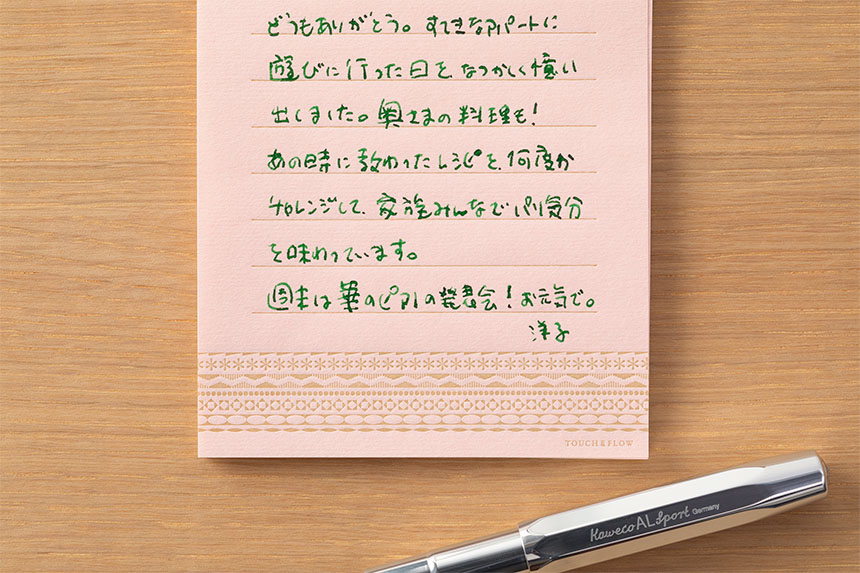 どうもありがとう。すてきなアパートに
遊びに行った日を、なつかしく憶い
出しました。奥さまの料理も！
あの日時に教わったレシピを、何度か
チャレンジして、家族みんなでパリ気分
を味わっています。
週末は華のピアノの発表会！お元気で。
洋子
TOUCH & FLOW
Kaweco AL Sport Germany